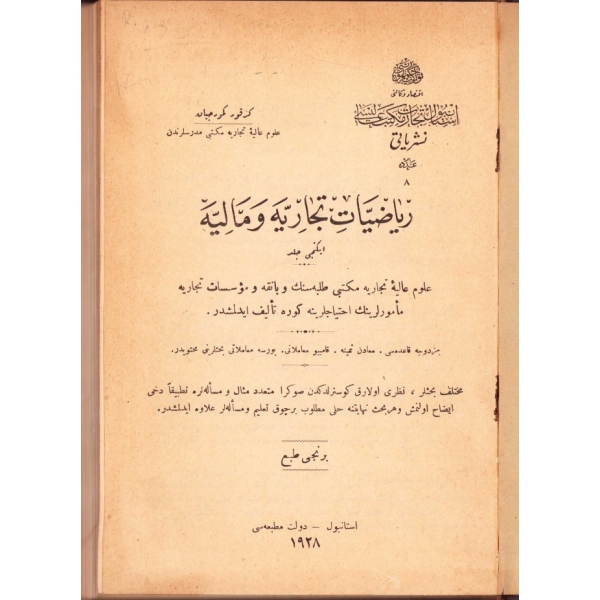 اقتصاد وكالتى
استانبول عالى تجارت مكتبى
نشرياتى
عدد
٨
كرقور كورجيان
علوم عاليۀ تجاريه مكتبى مدرسلرندن
رياضيات تجاريه و ماليه
ايكنجى جلد
علوم عاليۀ تجاريه مكتبى طلبه‌سنك و بانقه و مؤسسات تجاريه
مأمورلرينك احتياجلرينه كوره تأليف ايدلشدر .
مزدوجه قاعده‌سى . معادن ثمينه . قامبيو معاملاتى . بورسه معاملاتى بحثلرنى محتويدر .
مختلف بحثلر ، نظرى اولارق كوسترلدكدن صوكرا متعدد مثال و مسأله‌لره تطبيقاً دخى
ايضاح اولنمش و هر بحث نهايتنه حلى مطلوب برچوق تعليم و مسأله‌لر علاوه ايدلشدر .
برنجى طبع
استانبول – دولت مطبعه‌سى
١٩٢٨